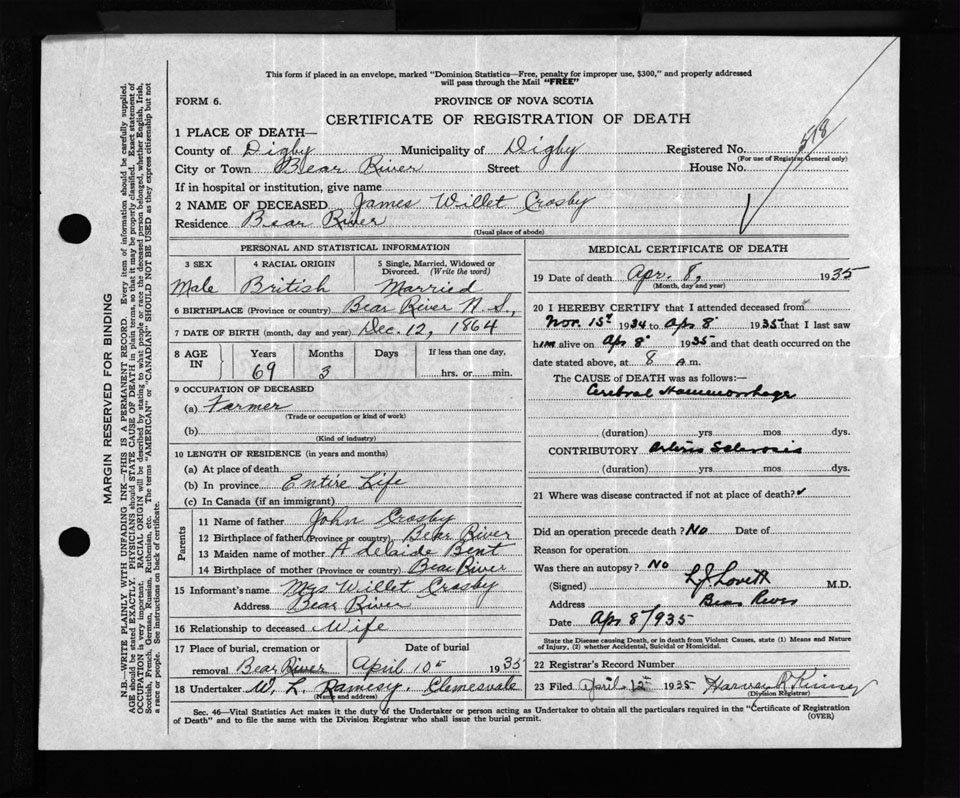 This form if placed in an envelope, marked "Dominion Statistics—Free, penalty for improper use, $300," and properly addressed
will pass through the Mail "FREE"
FORM 6.
PROVINCE OF NOVA SCOTIA
CERTIFICATE OF REGISTRATION OF DEATH
518
1 PLACE OF DEATH—
County of Digby Municipality of Digby Registered No.
(For use of Registrar General only)
City or Town Bear River Street House No.
If in hospital or institution, give name
2 NAME OF DECEASED James Willet Crosby
Residence Bear River
(Usual place of abode)
PERSONAL AND STATISTICAL INFORMATION
3 SEX 4 RACIAL ORIGIN 5 Single, Married, Widowed or
Divorced. (Write the word)
Male British Married
6 BIRTHPLACE (Province or country) Bear River N.S.,
7 DATE OF BIRTH (month, day and year) Dec. 12, 1864
8 AGE IN Years Months Days If less than one day,
69 3 hrs. or min.
9 OCCUPATION OF DECEASED
(a) Farmer
(Trade or occupation or kind of work)
(b)
(Kind of industry)
10 LENGTH OF RESIDENCE (in years and months)
(a) At place of death
(b) In province Entire Life
(c) In Canada (if an immigrant)
Parents
11 Name of father John Crosby
12 Birthplace of father (Province or country) Bear River
13 Maiden name of mother Adelaide Bent
14 Birthplace of mother (Province or country) Bear River
15 Informant's name Mrs Willet Crosby
Address Bear River
16 Relationship to deceased Wife
17 Place of burial, cremation or Date of burial
removal Bear River April 10th 1935
18 Undertaker W. L. Ramesy. Clemesvale
(Name and address)
MEDICAL CERTIFICATE OF DEATH
19 Date of death Apr. 8, 1935
(Month, day and year)
20 I HEREBY CERTIFY that I attended deceased from
Nov. 15th 1934 to Apr 8 1935 that I last saw
him alive on Apr 8 1935 and that death occurred on the
date stated above, at 8 A.m.
The CAUSE of DEATH was as follows:—
Cerebral Haemorrhage
(duration) yrs mos dys.
CONTRIBUTORY Arterio Sclerosis
(duration) yrs. mos. dys.
21 Where was disease contracted if not at place of death?
Did an operation precede death? No Date of
Reason for operation
Was there an autopsy? No
(Signed) L.J. Lovett M.D.
Address Bear River
Date Apr 8/935
State the Disease causing Death, or in death from Violent Causes, state (1) Means and Nature
of Injury, (2) whether Accidental, Suicidal or Homicidal.
22 Registrar's Record Number
23 Filed April. 12th 1935 Harvey R. Kinney
(Division Registrar)
Sec. 46—Vital Statistics Act makes it the duty of the Undertaker or person acting as Undertaker to obtain all the particulars required in the "Certificate of Registration
of Death" and to file the same with the Division Registrar who shall issue the burial permit.
(OVER)
MARGIN RESERVED FOR BINDING
N.B—WRITE PLAINLY WITH UNFADING INK—THIS IS A PERMANENT RECORD. Every item of information should be carefully supplied.
AGE should be stated EXACTLY. PHYSICIANS should STATE CAUSE OF DEATH in plain terms, so that it may be properly classified. Exact statement of
OCCUPATION is very important. RACIAL ORIGIN will be described by stating to what people or race the deceased person belonged, whether English, Irish,
Scottish, French, German, Russian, Ruthenian, etc. The terms "AMERICAN" or "CANADIAN" SHOULD NOT BE USED as they express citizenship but not
a race or people. See instructions on back of certificate.